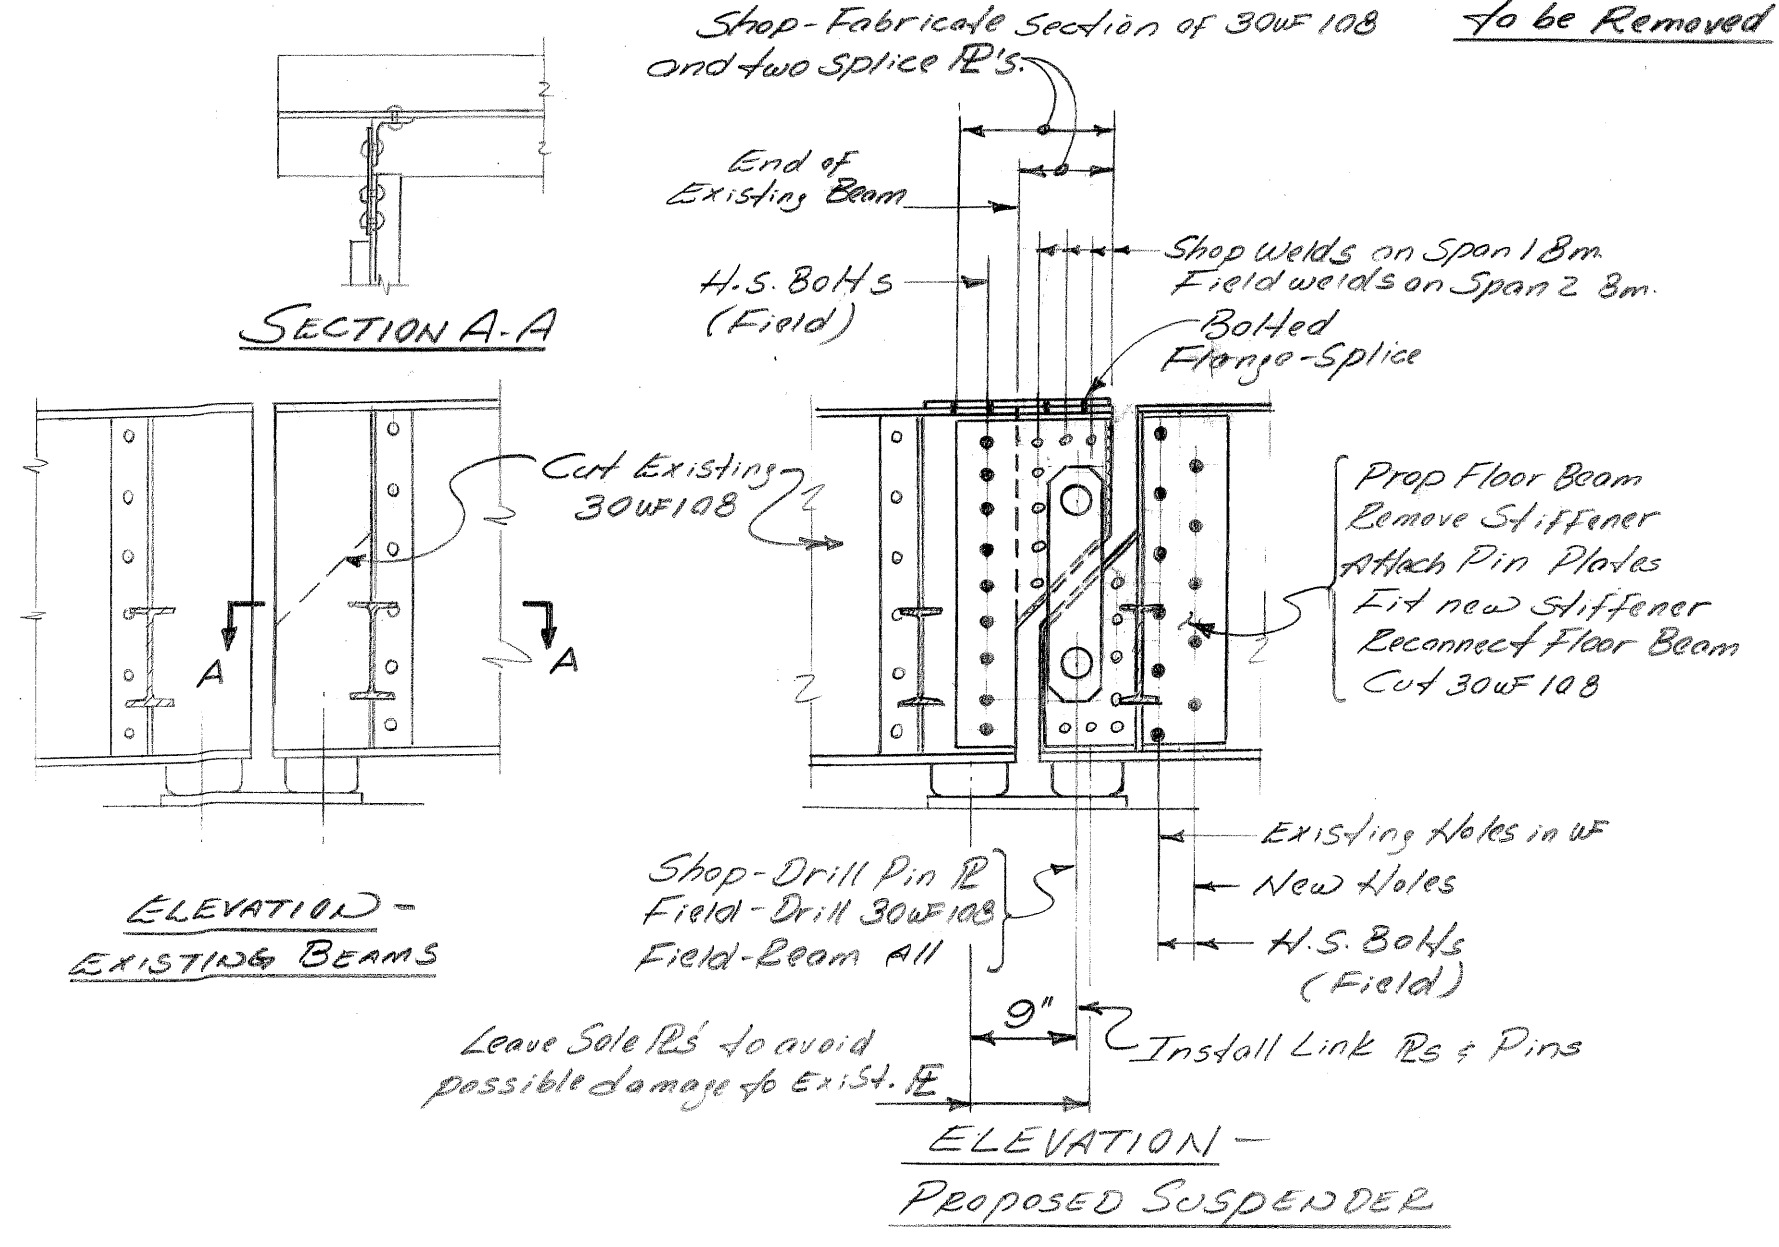 Shop-Fabricate Section of 30WF108
and two Splice PL's.
to be Removed
End of
Existing Beam
H.S. Bolts
(Field)
Shop welds on Span 1 Bm.
Field welds on Span 2 Bm.
Bolted
Flange-Splice
SECTION A-A
Cut Existing
30WF108
A
A
Prop Floor Beam
Remove Stiffener
Attach Pin Plates
Fit new stiffener
Reconnect Floor Beam
Cut 30WF108
ELEVATION-
EXISTING BEAMS
Shop-Drill Pin PL
Field-Drill 30WF108
Field-Ream All
Existing Holes in WF
New Holes
H.S. Bolts
(Field)
9"
Install Link PLs & Pins
Leave Sole PL's to avoid
possible damage to Exist. PL
ELEVATION-
PROPOSED SUSPENDER